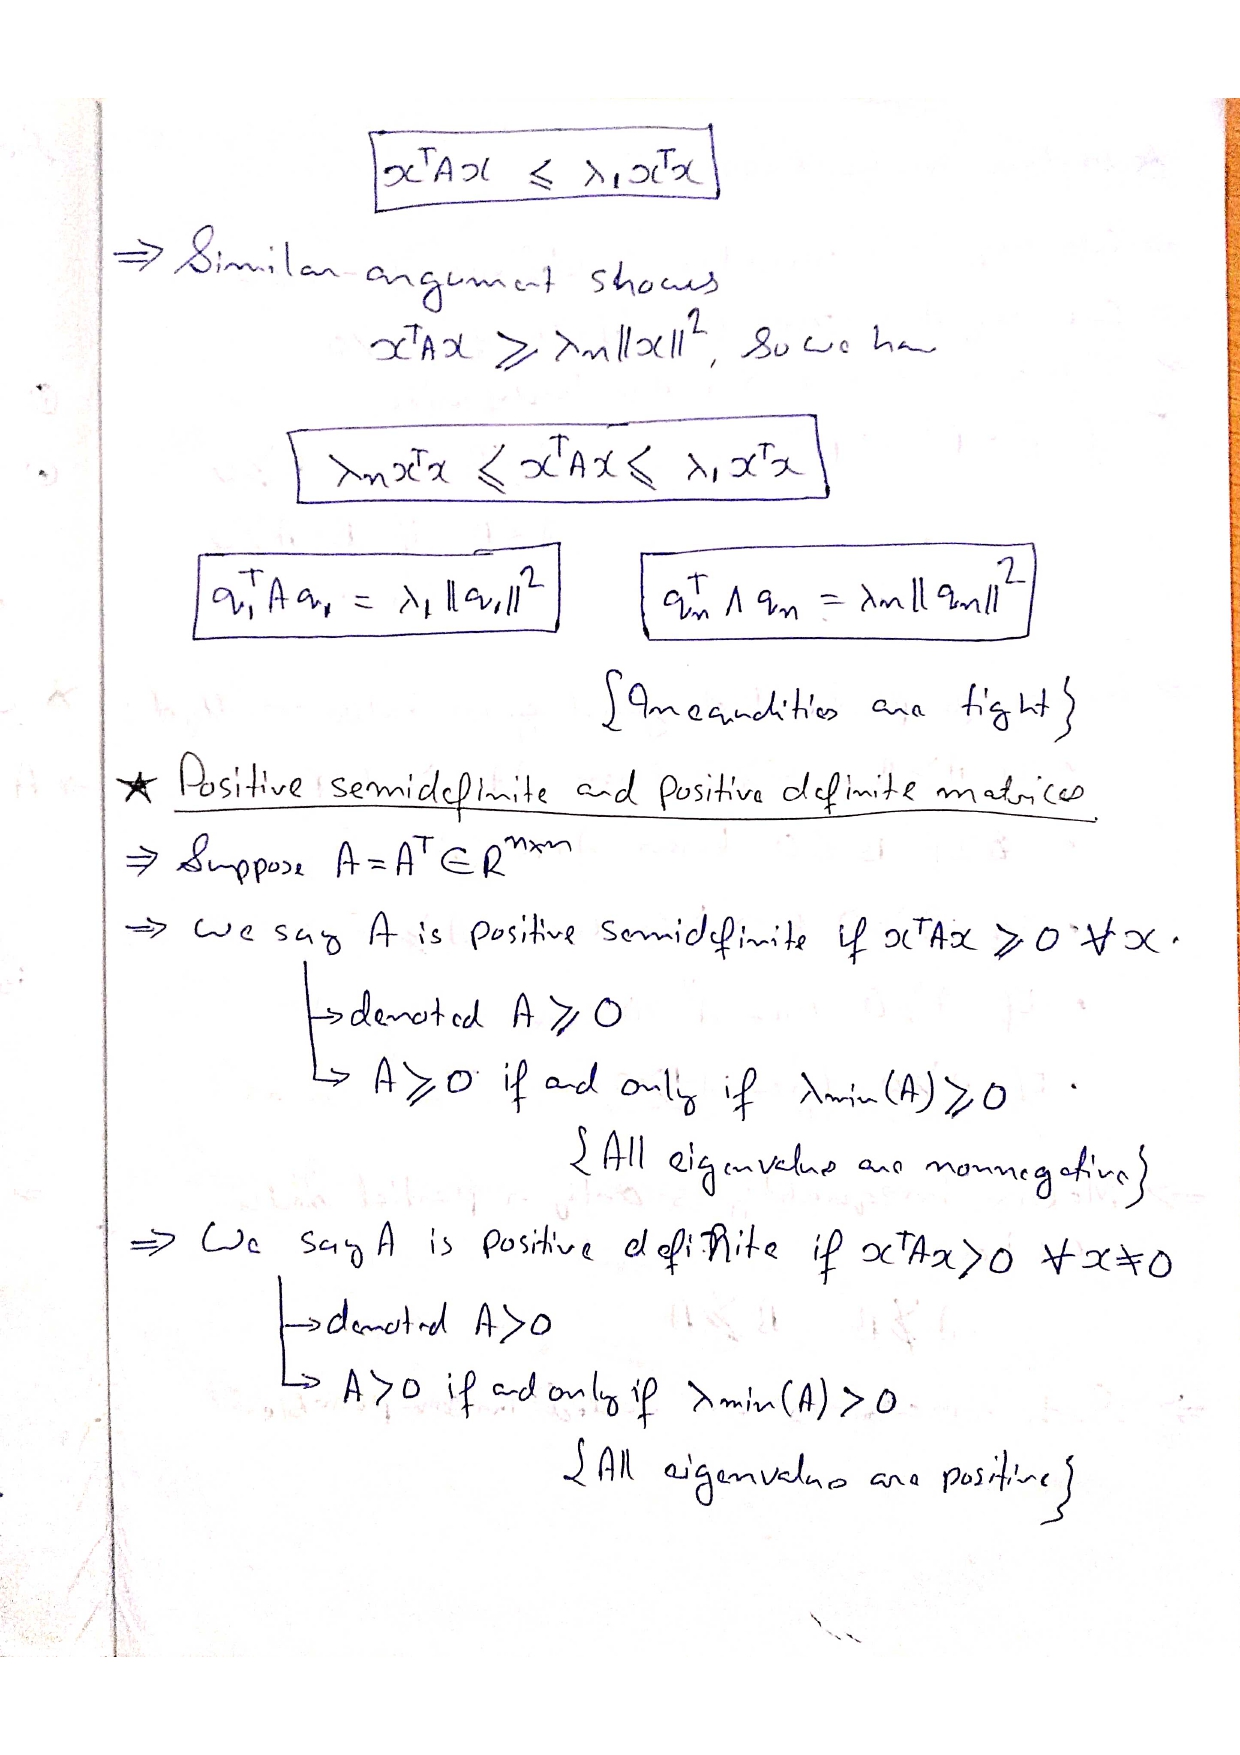 xᵀAx ⩽ λ₁xᵀx
⇒ Similar argument shows
xᵀAx ⩾ λn||x||², So we have
λn xᵀx ⩽ xᵀAx ⩽ λ₁ xᵀx
q₁ᵀAq₁ = λ₁||q₁||² qnᵀ A qn = λn||qn||²
{Inequalities are tight}
★ Positive semidefinite and positive definite matrices
⇒ Suppose A = Aᵀ ∈ Rⁿˣⁿ
⇒ we say A is positive semidefinite if xᵀAx ⩾ 0 ∀ x.
→ denoted A ⩾ 0
→ A ⩾ 0 if and only if λmin(A) ⩾ 0
{All eigenvalues are nonnegative}
⇒ We say A is positive definite if xᵀAx > 0 ∀ x ≠ 0
→ denoted A > 0
→ A > 0 if and only if λmin(A) > 0
{All eigenvalues are positive}